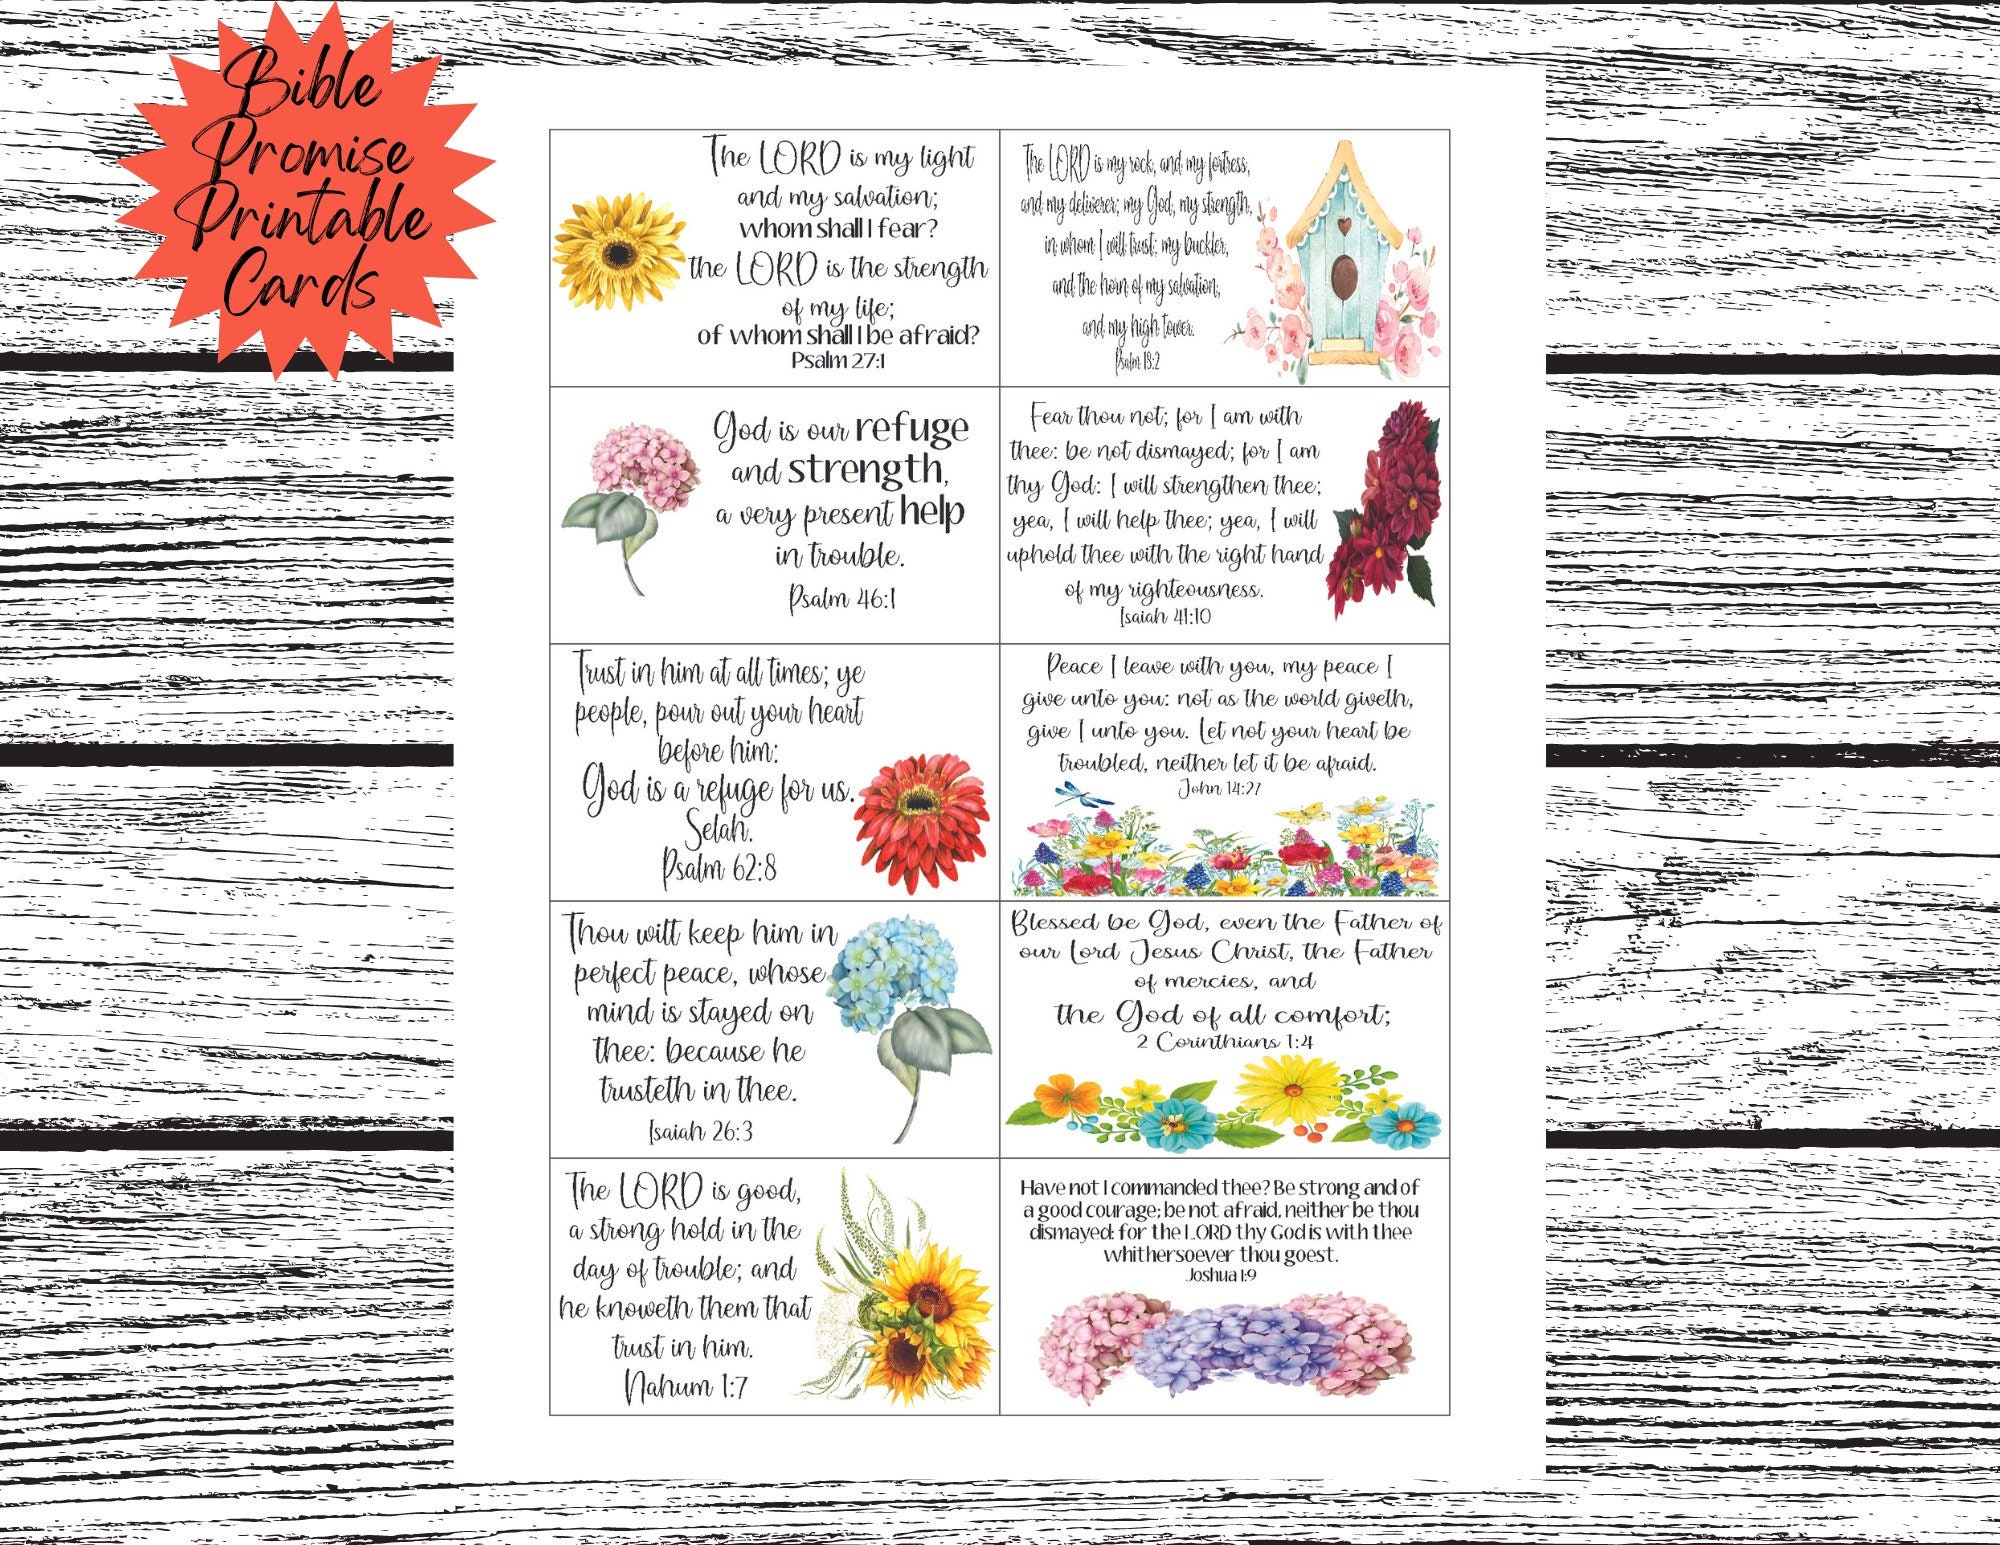 Bible
Promise
Printable
Cards
The LORD is my light
and my salvation;
whom shall I fear?
the LORD is the strength
of my life;
of whom shall I be afraid?
Psalm 27:1
The LORD is my rock, and my fortress,
and my deliverer; my God, my strength,
in whom I will trust; my buckler,
and the horn of my salvation,
and my high tower.
Psalm 18:2
God is our refuge
and strength,
a very present help
in trouble.
Psalm 46:1
Fear thou not; for I am with
thee: be not dismayed; for I am
thy God: I will strengthen thee;
yea, I will help thee; yea, I will
uphold thee with the right hand
of my righteousness.
Isaiah 41:10
Trust in him at all times; ye
people, pour out your heart
before him:
God is a refuge for us.
Selah.
Psalm 62:8
Peace I leave with you, my peace I
give unto you: not as the world giveth,
give I unto you. Let not your heart be
troubled, neither let it be afraid.
John 14:27
Thou wilt keep him in
perfect peace, whose
mind is stayed on
thee: because he
trusteth in thee.
Isaiah 26:3
Blessed be God, even the Father of
our Lord Jesus Christ, the Father
of mercies, and
the God of all comfort;
2 Corinthians 1:4
The LORD is good,
a strong hold in the
day of trouble; and
he knoweth them that
trust in him.
Nahum 1:7
Have not I commanded thee? Be strong and of
a good courage; be not afraid, neither be thou
dismayed: for the LORD thy God is with thee
whithersoever thou goest.
Joshua 1:9